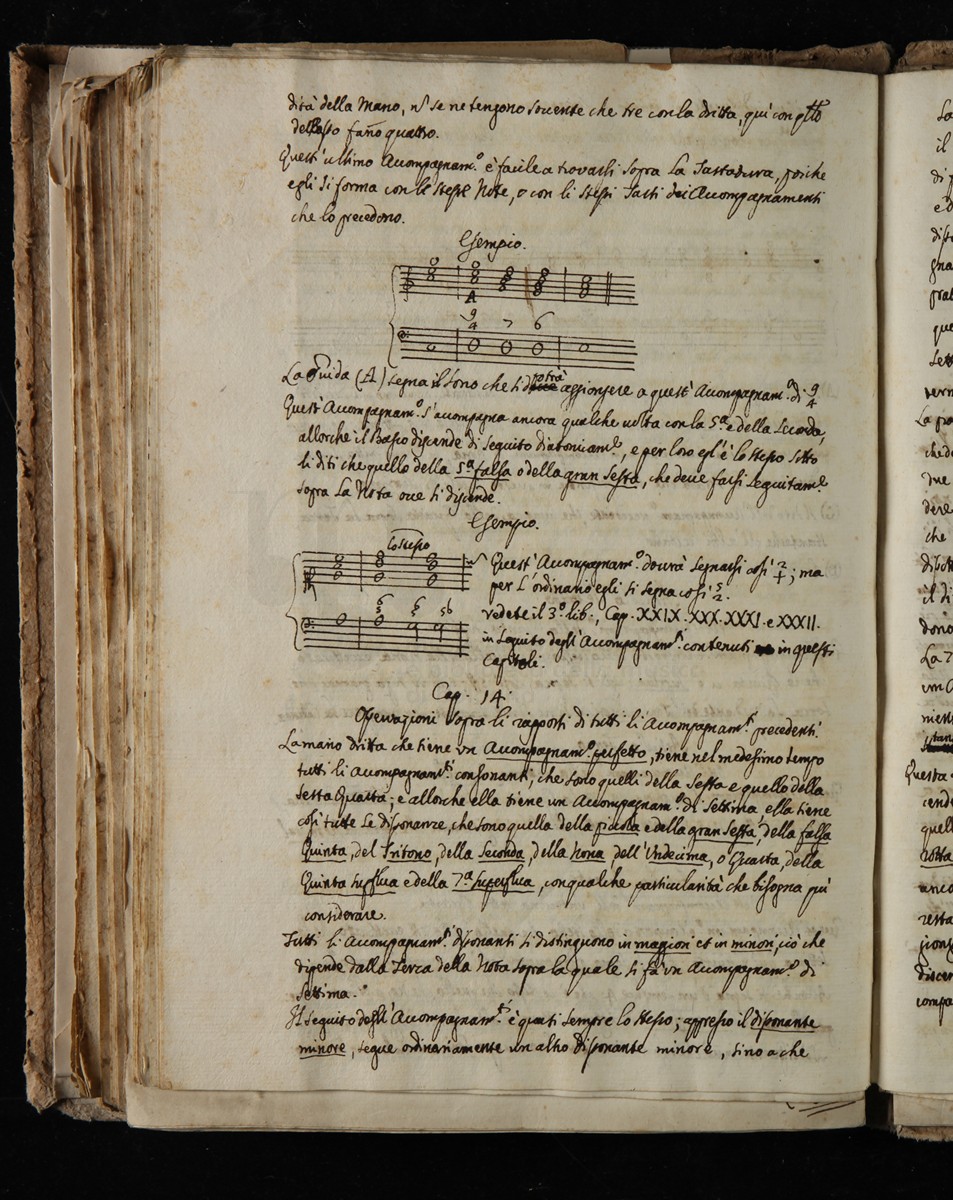 dità della Mano, nè se ne tengono sovente che tre con la dritta, quì con
del Basso fanno quattro.
Quest'ultimo Accompagnam.º è facile a trovarsi sopra La Tastadura, poiche
egli si forma con le stesse Note, o con li stessi Tasti dei Accompagnamenti
che lo precedono.
Esempio.
A
9
4 7 6
La Guida (A) segna il sono che si potrà aggiongere a quest' Accompagnam.º di 9/4
Quest' Accompagnam.º s'accompagna ancora qualche volta con la 5.ª e della Seconda,
allorche il Basso discende di seguito diatonicam.e, e per loro egl'è lo stesso sitto
li diti che quello della 5.ª falsa o della gran Sesta, che deve farsi seguitam.e
sopra La Nota ove si discende.
Esempio.
Lo stesso
Quest' Accompagnam.º dovrà segnarsi cosi 2/+; ma
per L'ordinario egli si segna cosi 5/2.
6
5 6
5 56
vedete il 3.º lib:, Cap. XXIX. XXX. XXXI. e XXXII.
in Seguito degl'Accompagnam.ti contenuti in questi
Capitoli.
Cap. 14.
Osservazioni sopra li rapporti di tutti li Accompagnam.ti precedenti.
La mano dritta che tiene un Accompagnam.º perfetto, tiene nel medesimo tempo
tutti li Accompagnam.ti consonanti, che sono quelli della Sesta e quello della
Sesta Quarta; e allorche ella tiene un Accompagnam.º di Settima ella tiene
cosi tutte Le dissonanze, che sono quella della piccola e della gran Sesta, della falsa
Quinta, del Tritono, della Seconda, della Nona dell'Undecima, o Quarta, della
Quinta superflua e della 7.ª Superflua, con qualche particolarità che bisogna pú
considerare.
Tutti li Accompagnam.ti dissonanti si distinguono in maggiori et in minori, ciò che
dipende dalla Terza della Nota sopra la quale si fà un Accompagnam.º di
Settima.
Il seguito degl'Accompagnam.ti è quasi sempre lo stesso; appresso il dissonante
minore, segue ordinariamente un altro dissonante minore, sino a che